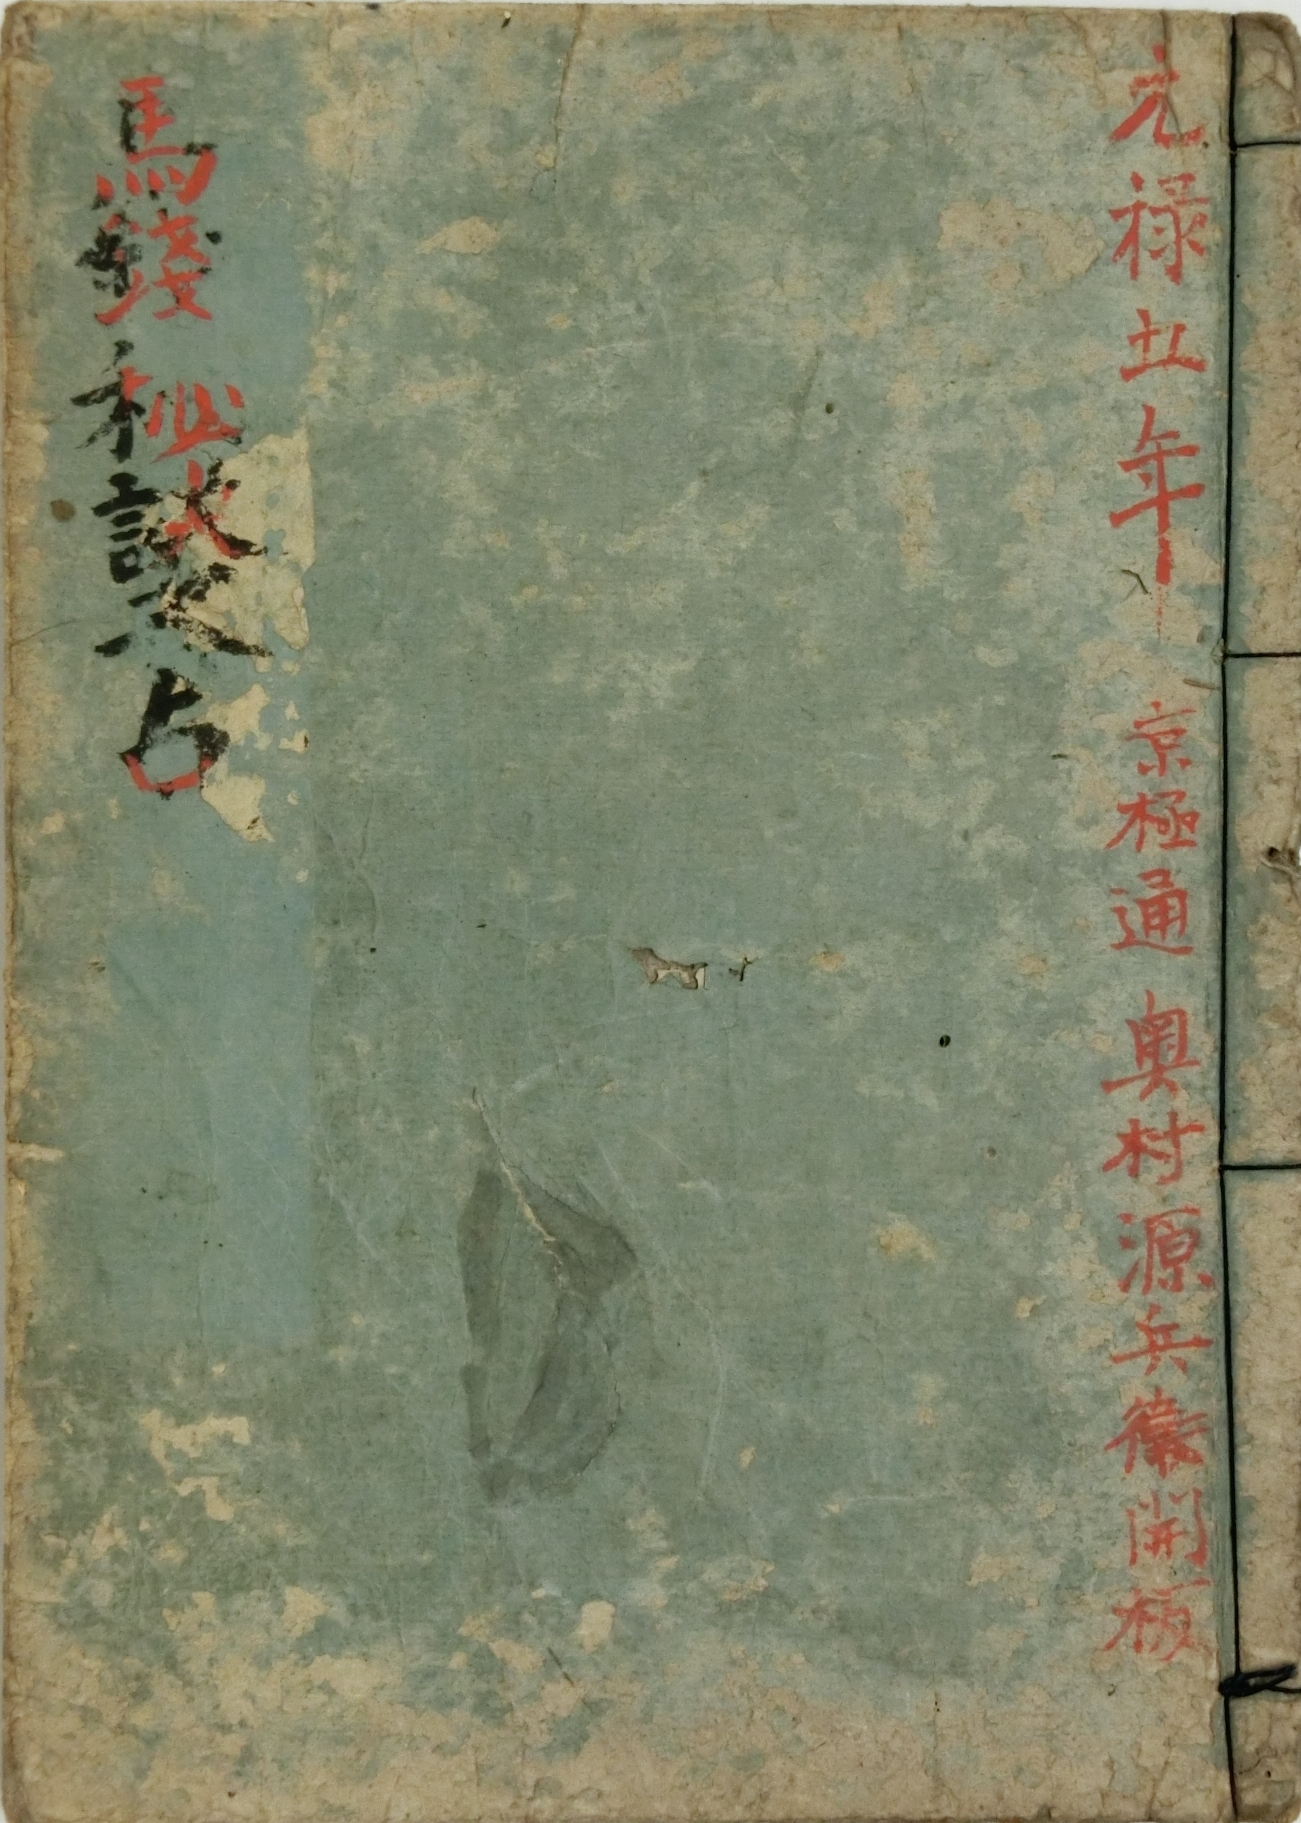 元禄五年 京極通 奥村源兵衛開板
馬錢秘訣 占